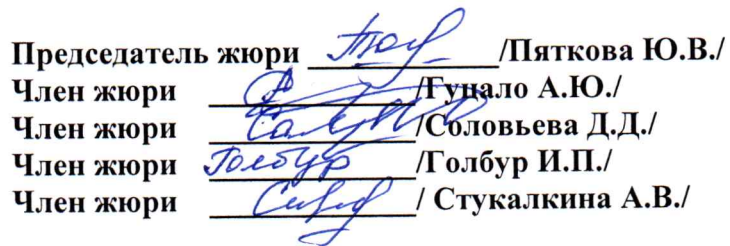 Председатель жюри /Пяткова Ю.В./
Член жюри /Гуцало А.Ю./
Член жюри /Соловьева Д.Д./
Член жюри Голбур /Голбур И.П./
Член жюри / Стукалкина А.В./